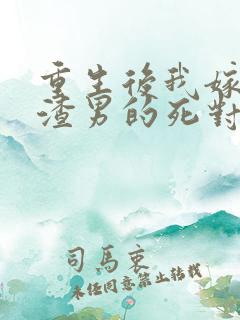 重生後我嫁
渣男的死對
司馬衷
未經同意禁止轉載